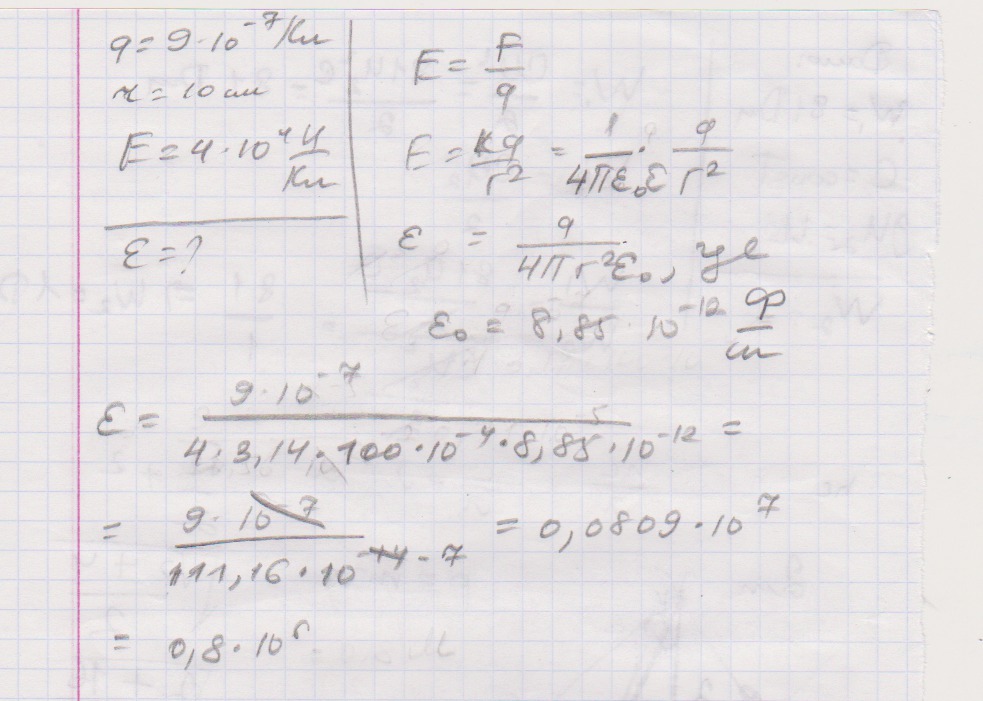 q = 9·10⁻⁷ Кл
r = 10 см
E = 4·10⁴ Н/Кл
ε = ?
E = F/q
E = kq/r² = 1/4πε₀ε · q/r²
ε = q/4πr²ε₀, где
ε₀ = 8,85·10⁻¹² Ф/м
ε = 9·10⁻⁷/4·3,14·100·10⁻⁴·8,85·10⁻¹² =
= 9·10⁻⁷/111,16·10⁻¹⁴⁻⁷ = 0,0809·10⁷
= 0,8·10⁶